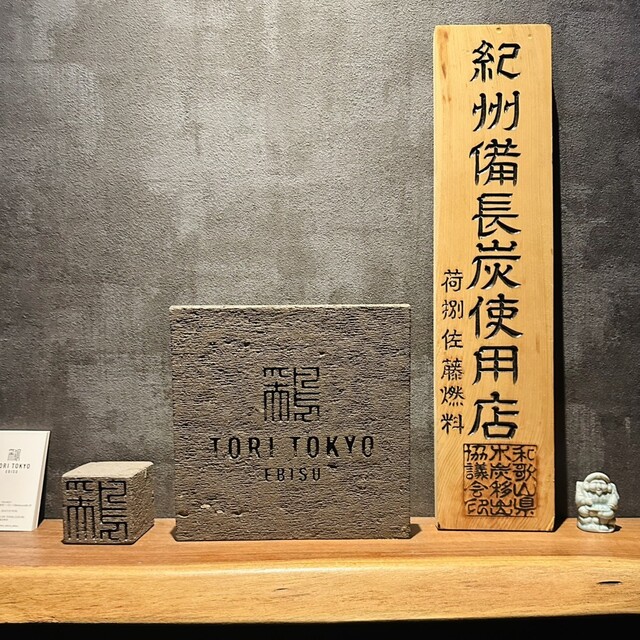 TORI TOKYO
EBISU
TORI TOKYO
EBISU
紀州備長炭使用店
荷捌佐藤燃料
和歌山県
木炭移出
協議会印